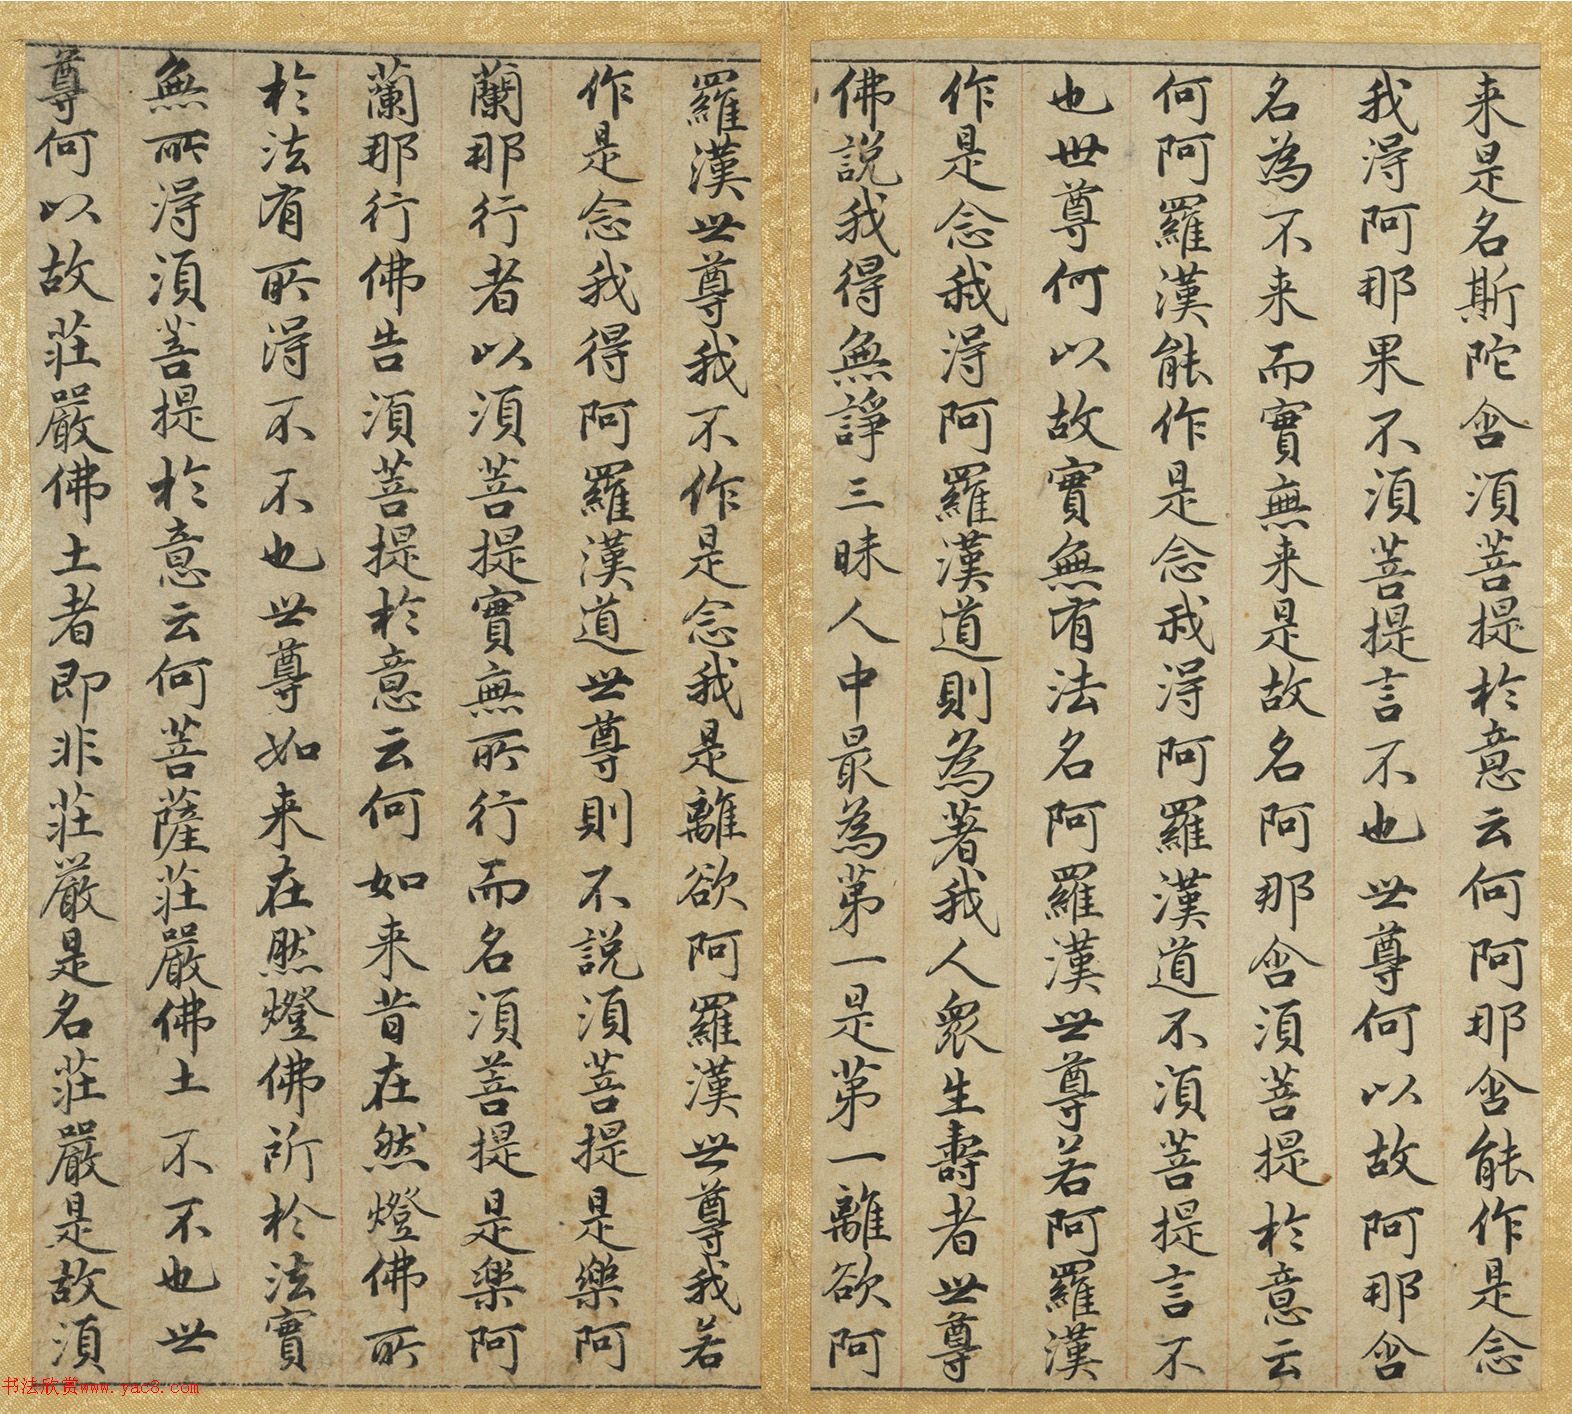 来是名斯陀含須菩提於意云何阿那含能作是念
我得阿那果不須菩提言不也世尊何以故阿那含
名為不来而實無来是故名阿那含須菩提於意云
何阿羅漢能作是念我得阿羅漢道不須菩提言不
也世尊何以故實無有法名阿羅漢世尊若阿羅漢
作是念我得阿羅漢道則為著我人衆生壽者世尊
佛說我得無諍三昧人中最為第一是第一離欲阿
羅漢世尊我不作是念我是離欲阿羅漢世尊我若
作是念我得阿羅漢道世尊則不說須菩提是樂阿
蘭那行者以須菩提實無所行而名須菩提是樂阿
蘭那行佛告須菩提於意云何如来昔在然燈佛所
於法有所得不不也世尊如来在然燈佛所於法實
無所得須菩提於意云何菩薩莊嚴佛土不不也世
尊何以故莊嚴佛土者即非莊嚴是名莊嚴是故須
书法欣赏www.yac8.com